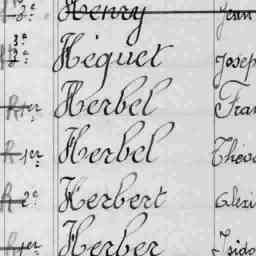 2e Henry Jean
3e Héquet Josep
1er Herbel Fran
R 1er Herbel Théod
R 2e Herbert Alexi
1er Herber Isido